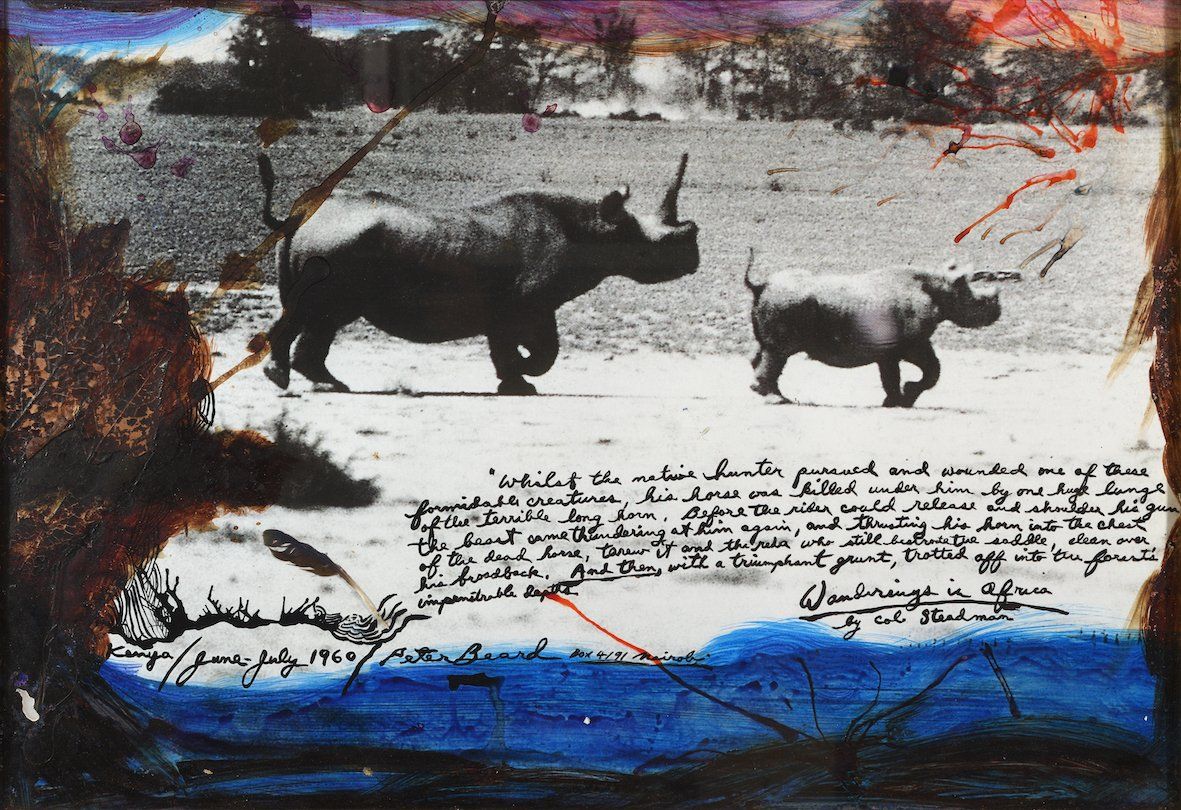 "Whilst the native hunter pursued and wounded one of these
formidable creatures, his horse was killed under him by one huge lunge
of the terrible long horn. Before the rider could release and shoulder his gun
the beast came thundering at him again, and thrusting his horn into the chest
of the dead horse, threw it and the rider who still bestrode the saddle, clean over
his broadback. And then, with a triumphant grunt, trotted off into the forests
impenetrable depths
Wanderings in Africa
by Col. Steadman
Kenya / June-July 1960 / Peter Beard Box 4191 Nairobi